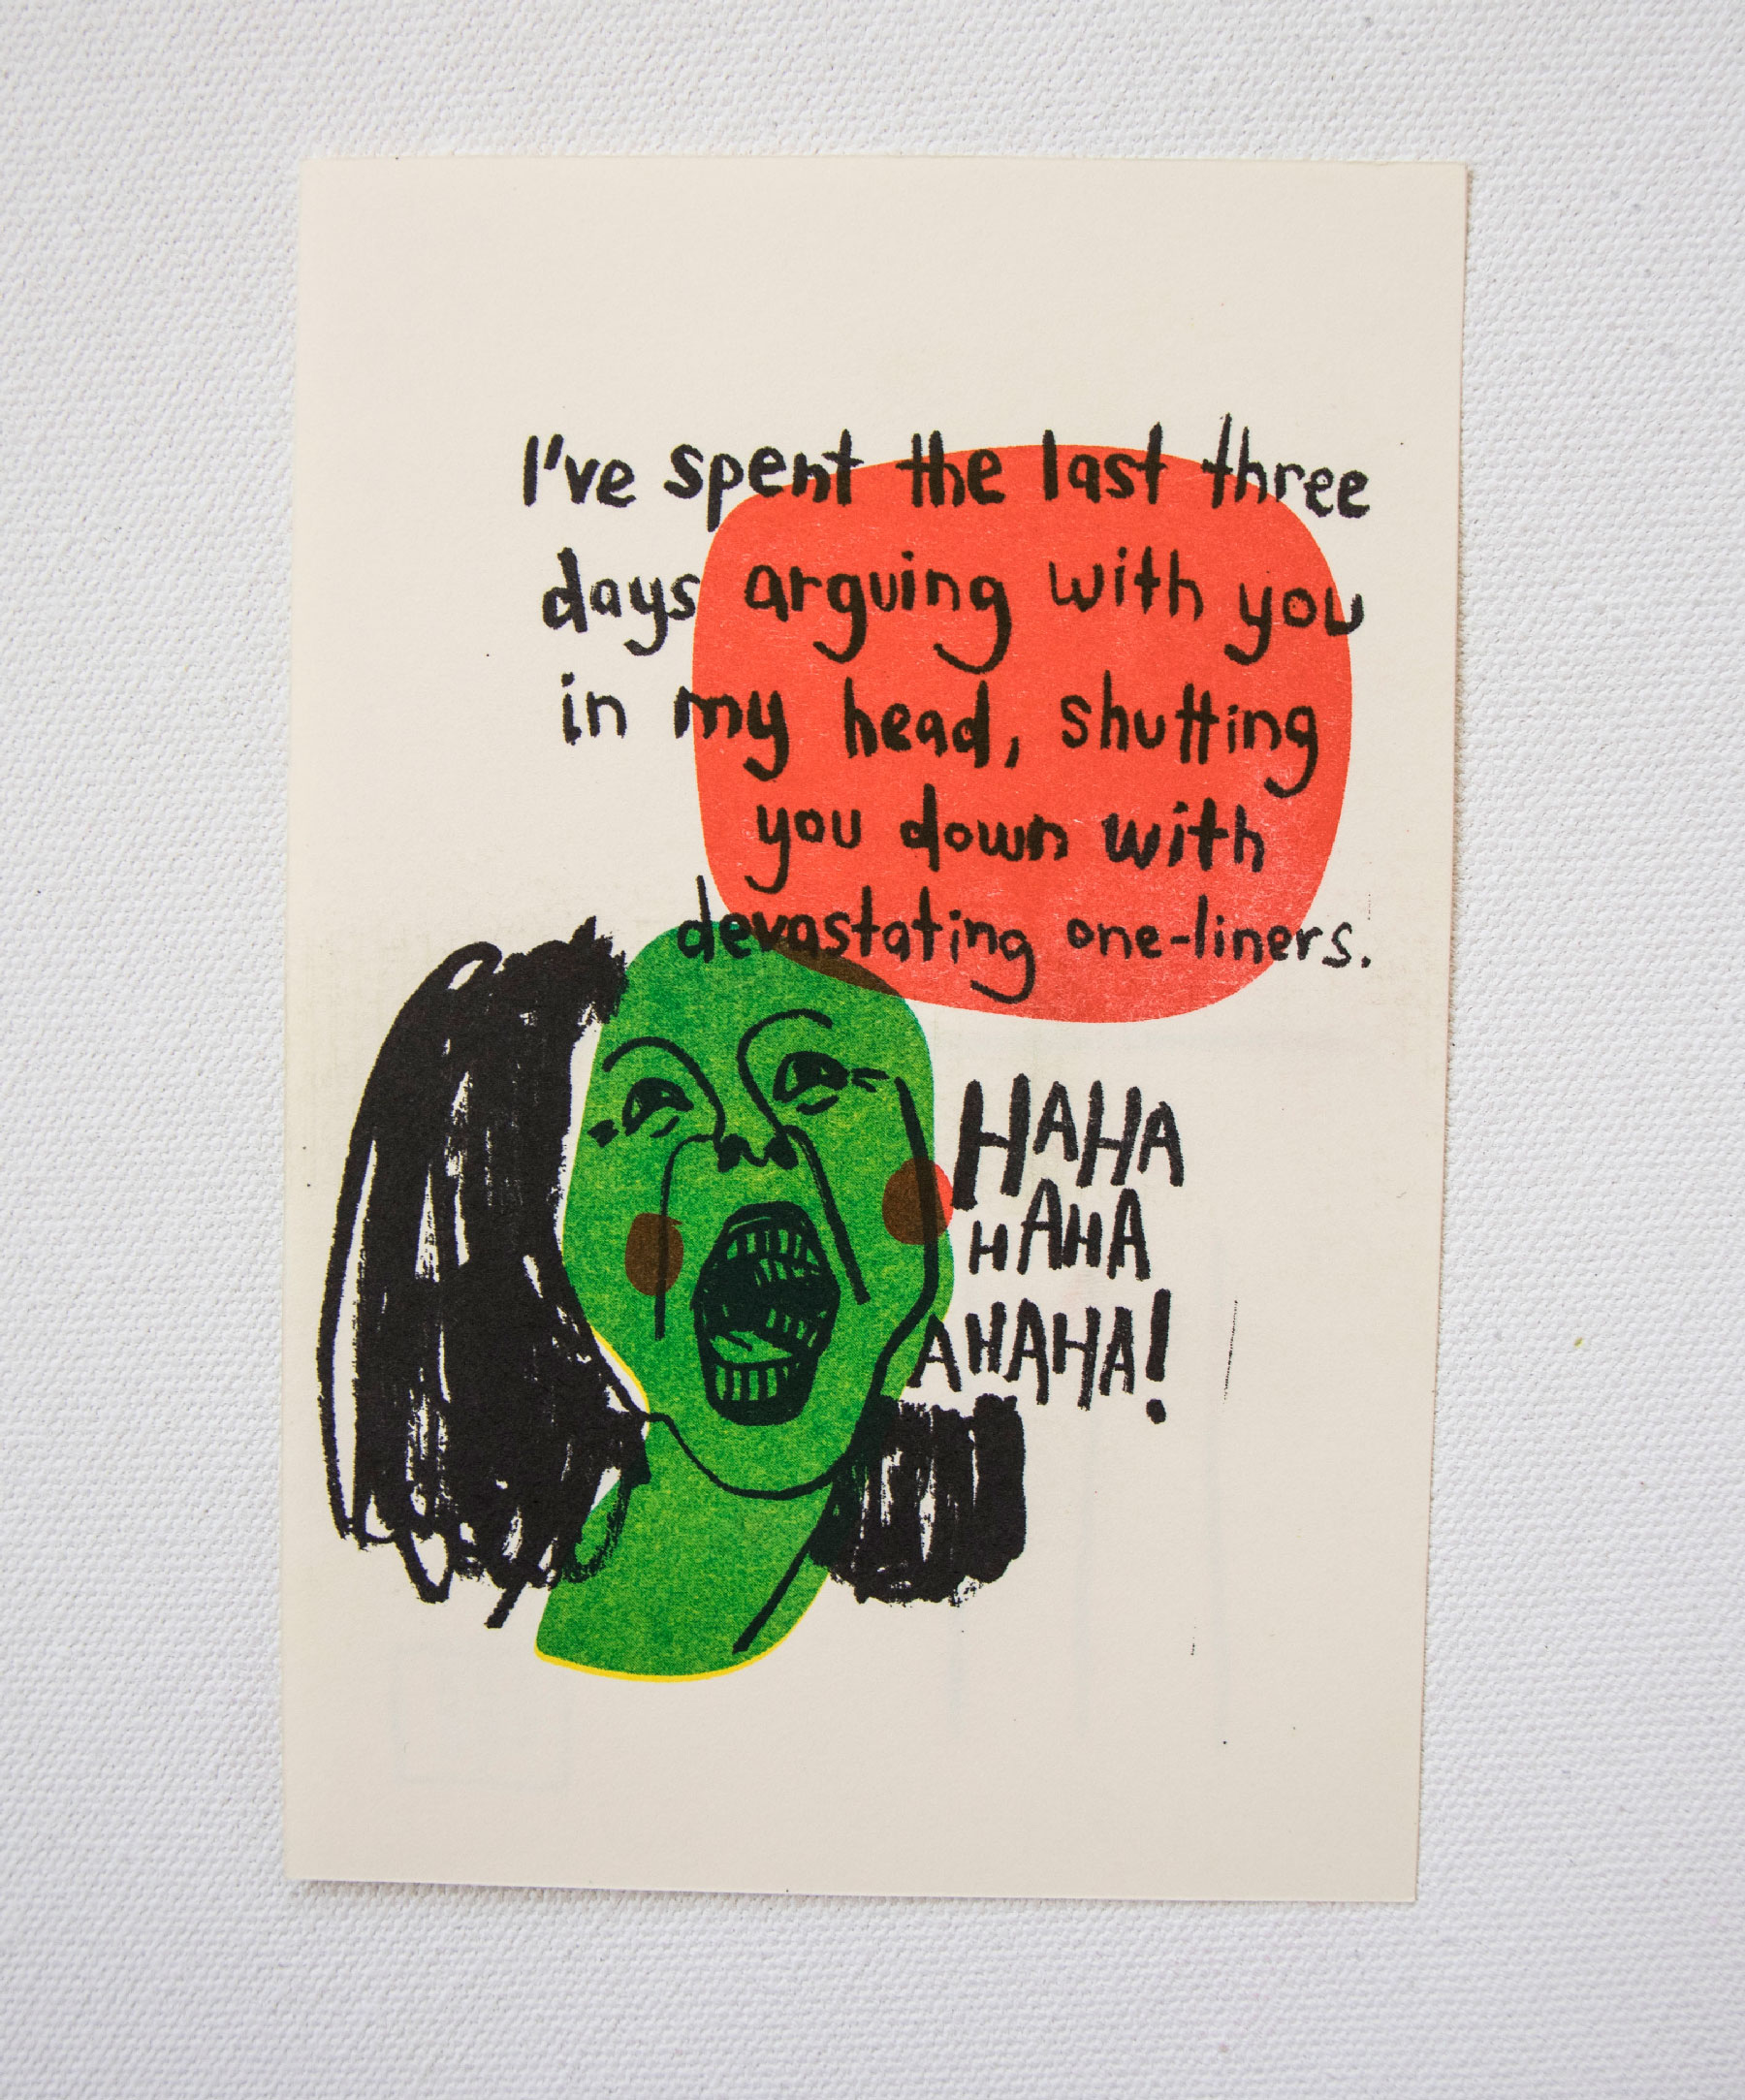 I've spent the last three
days arguing with you
in my head, shutting
you down with
devastating one-liners.
HAHA
HAHA
AHAHA!